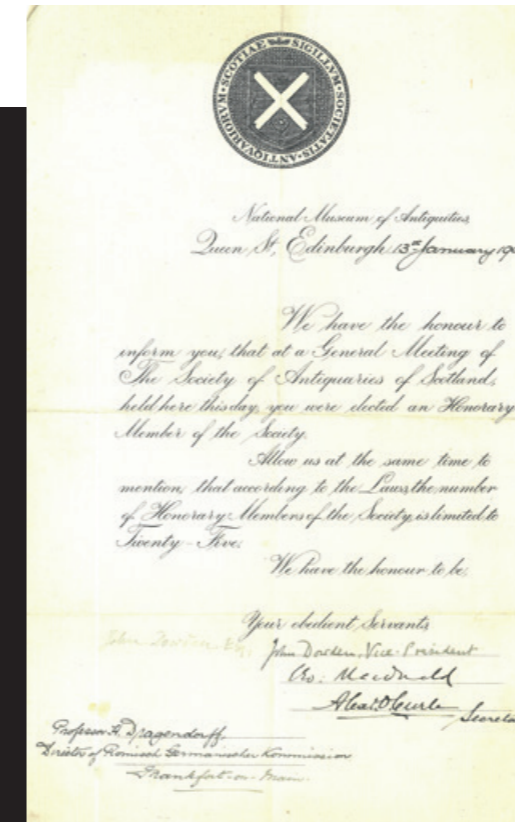 SIGILLVM · SOCIETATIS · ANTIQVARIORVM · SCOTIAE
National Museum of Antiquities,
Queen St, Edinburgh 13th January 19
We have the honour to
inform you, that at a General Meeting of
The Society of Antiquaries of Scotland,
held here this day, you were elected an Honorary
Member of the Society.
Allow us at the same time to
mention, that according to the Laws, the number
of Honorary Members of the Society, is limited to
Twenty-Five.
We have the honour to be,
Your obedient Servants,
John Dowden
John Dowden, Vice-President
Geo: Macdonald
Alex. O. Curle
Secreta
Professor H. Dragendorff,
Director of Römisch Germanischer Kommission
Frankfort-on-Main.